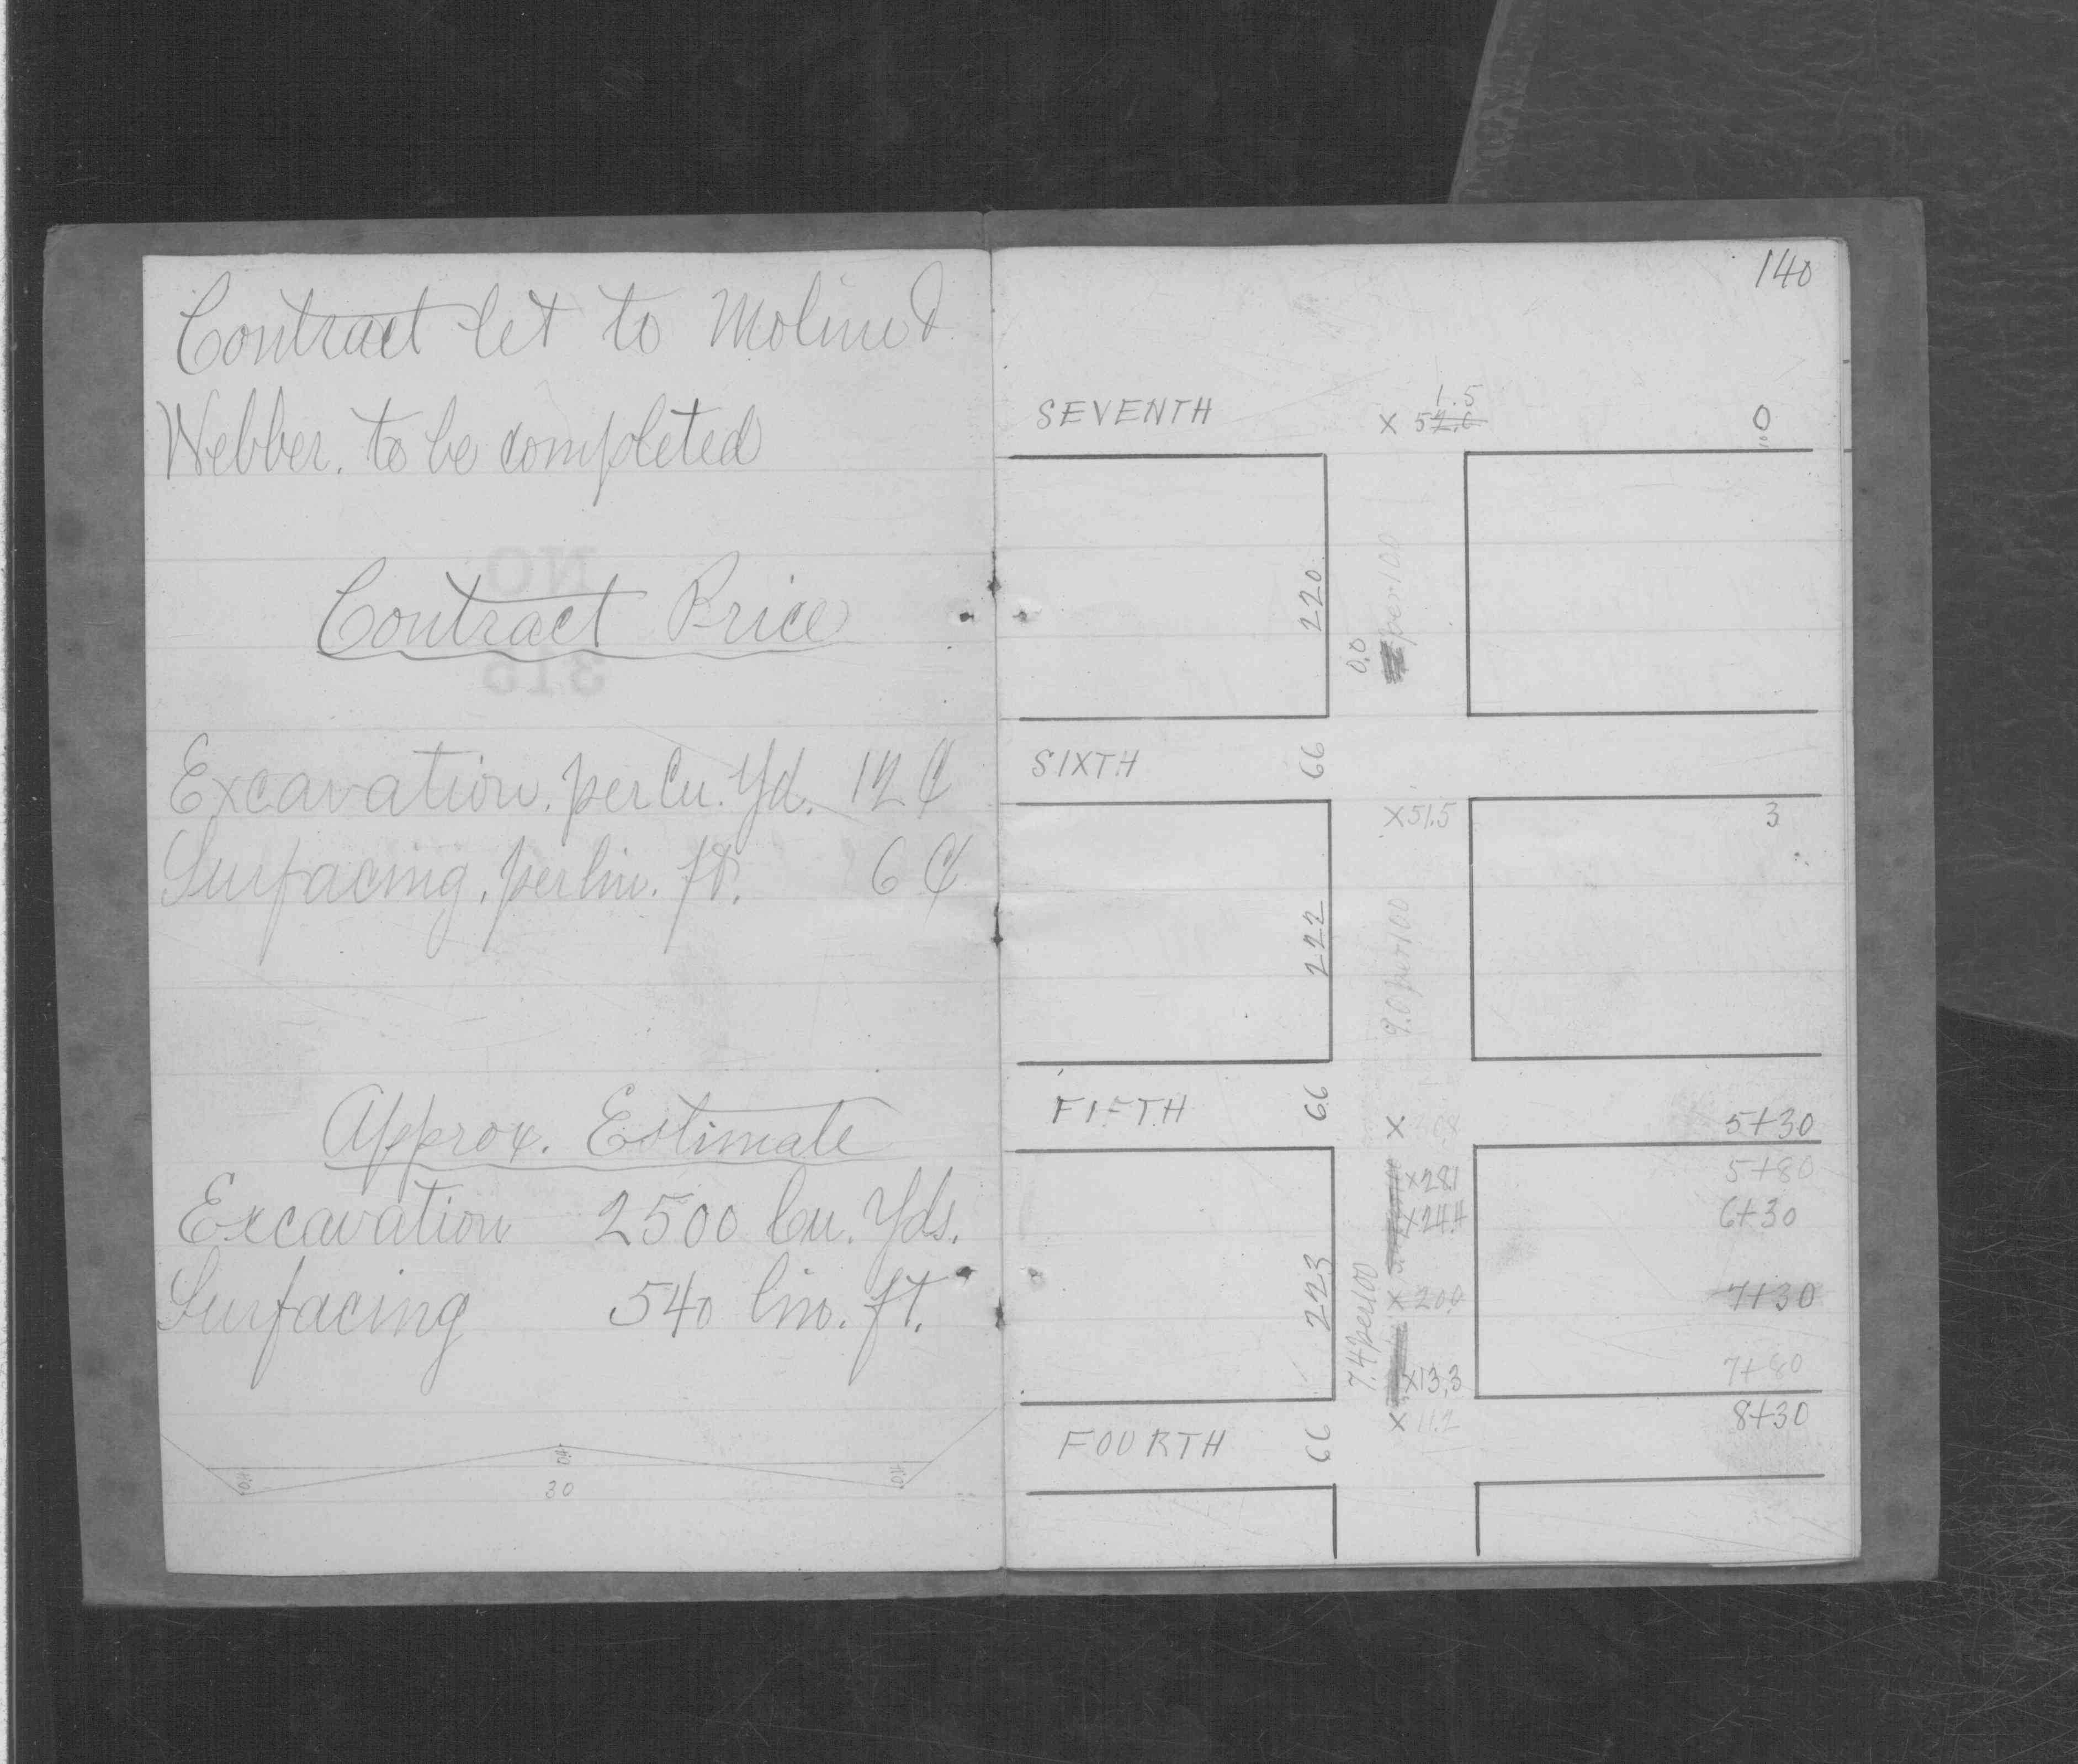 Contract let to Moline &
Webber. to be completed
Contract Price
Excavation. per Cu. Yd. 12 ¢
Surfacing. per lin. ft. 6 ¢
Approx. Estimate
Excavation 2500 Cu. Yds.
Surfacing 540 lin. ft.
30
140
SEVENTH
1.5
x 52.0
0
220
0.0
per 100
SIXTH
66
x51.5
3
222
9.0 per 100
FIFTH
66
x
5+30
5+80
x28.1
6+30
x24.4
223
7.4 per 100
x 20.0
7+30
x13.3
7+80
x 11.2
8+30
FOURTH
66